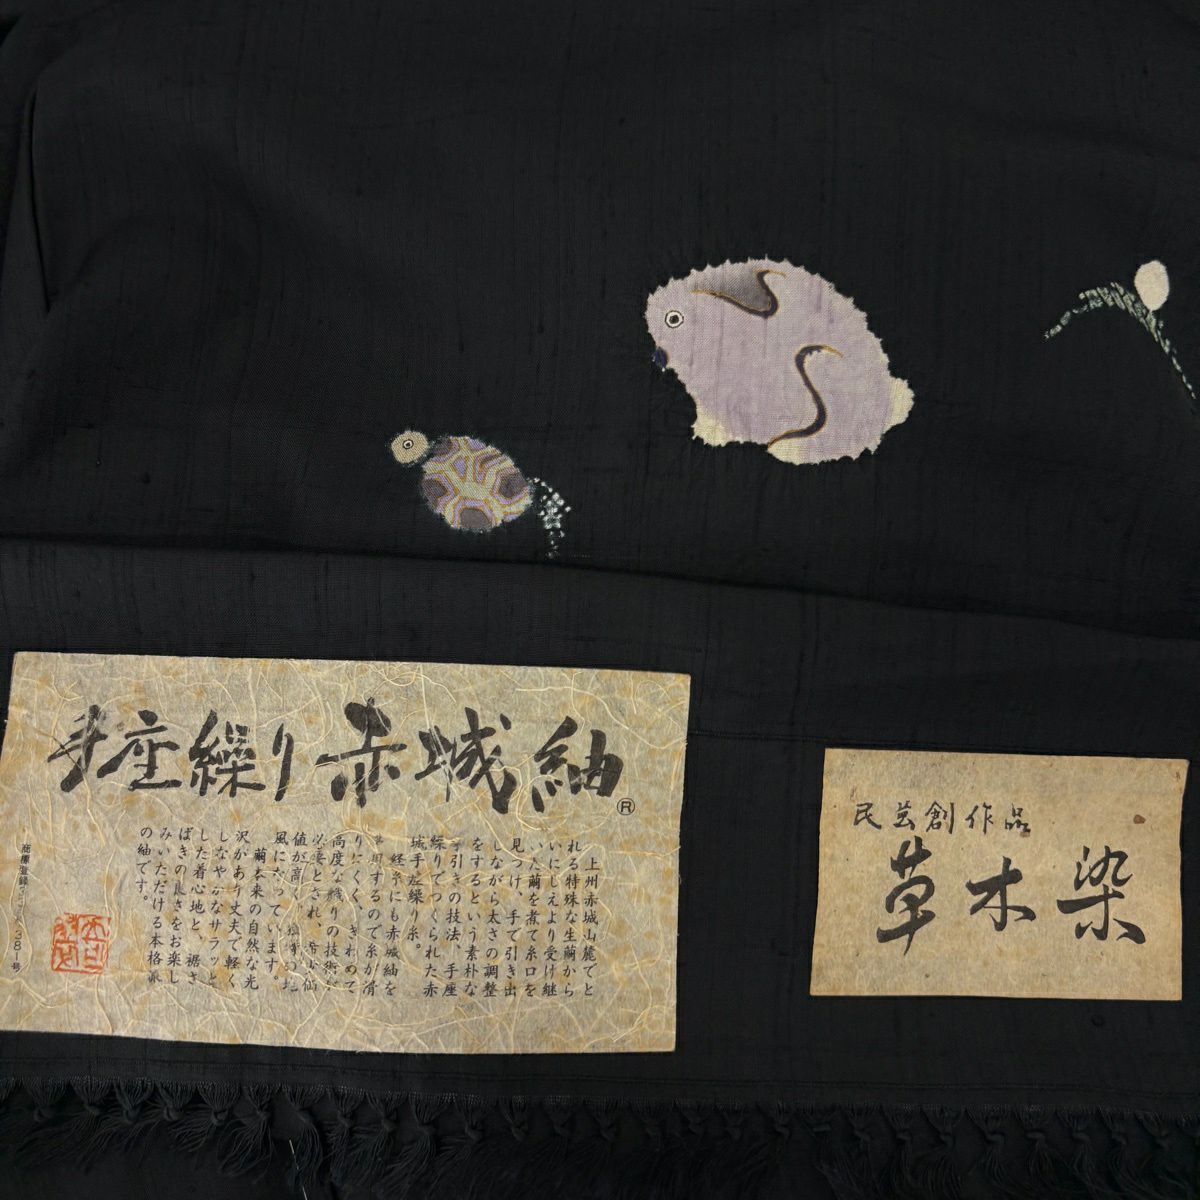 手座繰り赤城紬
®
上州赤城山麓でと
れる特殊な生繭から
いにしえより受け継
いた繭を煮て糸口を
見つけ、手で引き出
しながら太さの調整
をするという素朴な
引きの技法、手座
繰りでつくられた赤
城手座繰り糸。
経糸にも赤城紬を
用するので糸が滑
りにくく、きわめて
高度な織りの技術が
必要とされ、
値が高く、
風になっています。
繭本来の自然な光
沢があり丈夫で軽く
しなやかなサラッと
した着心地と、裾さ
ばきの良さをお楽し
みいただける本格派
の紬です。
商標登録
381号
民芸創作品
草木染